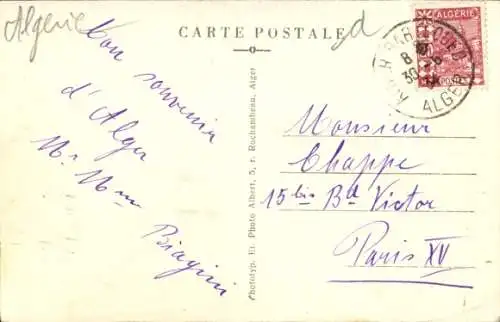 Algerie
CARTE POSTALE
d
ALGÉRIE
8
30-6
ALGER
bon souvenir
d'Alger
Mr Mme
Biagini
Phototyp. Et. Photo Albert, 5, r. Rochambeau, Alger
Monsieur
Chappe
15 bis Bd Victor
Paris XV